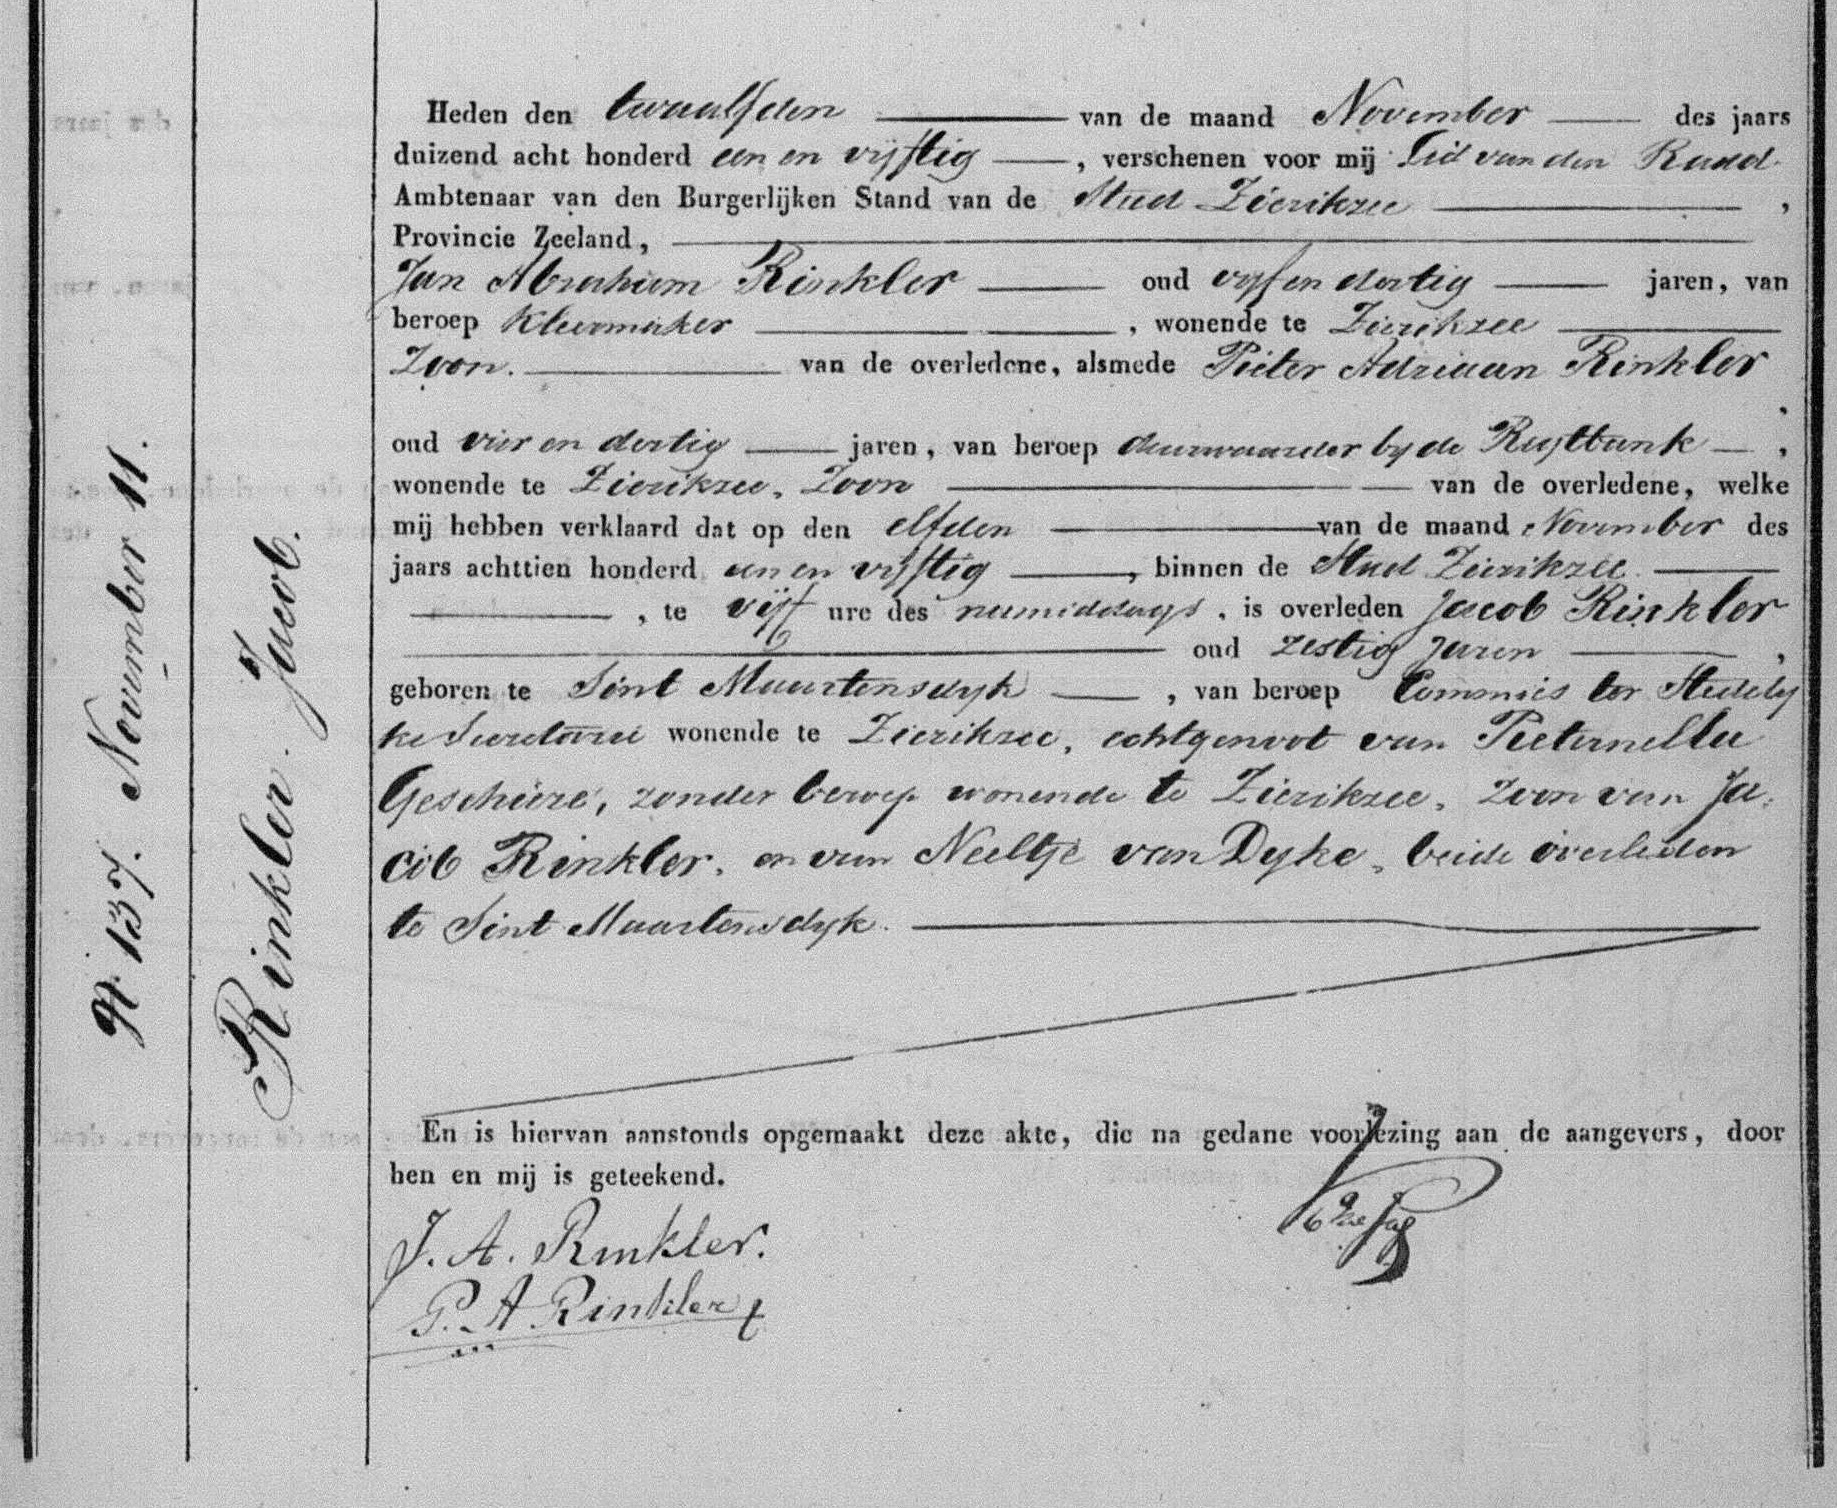 No 137. November 11.
Rinkler. Jacob.
Heden den twaalfden van de maand November des jaars
duizend acht honderd een en vijftig, verschenen voor mij Lid van den Raad
Ambtenaar van den Burgerlijken Stand van de Stad Zierikzee,
Provincie Zeeland,
Jan Abraham Rinkler oud vyf en dertig jaren, van
beroep Kleermaker, wonende te Zierikzee
Zoon. van de overledene, alsmede Pieter Adriaan Rinkler,
oud vier en dertig jaren, van beroep deurwaarder by de Regtbank,
wonende te Zierikzee, Zoon van de overledene, welke
mij hebben verklaard dat op den elfden van de maand November des
jaars achttien honderd een en vyftig, binnen de Stad Zierikzee
, te vijf ure des namiddags, is overleden Jacob Rinkler
oud zestig jaren,
geboren te Sint Maartensdyk, van beroep Commies ter Stedely
ke Secretarie wonende te Zierikzee, echtgenoot van Pieternella
Geschiere, zonder beroep wonende te Zierikzee, zoon van Ja
cob Rinkler, en van Neeltje van Dyke, beide overleden
te Sint Maartensdyk.
En is hiervan aanstonds opgemaakt deze akte, die na gedane voorlezing aan de aangevers, door
hen en mij is geteekend.
J. A. Rinkler.
P. A Rinkler